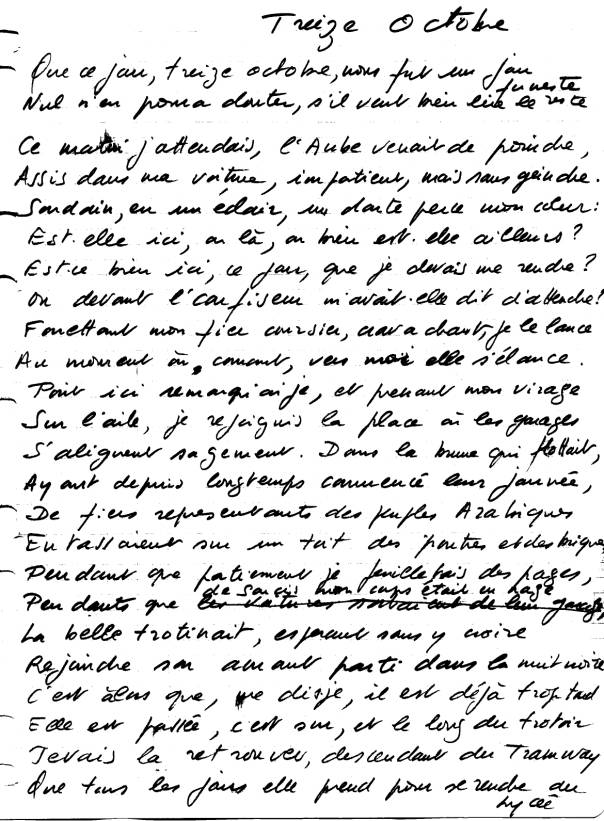 Treize Octobre
Que ce jour, treize octobre, nous fut un jour funeste
Nul n'en pourra douter, s'il veut bien lire le reste
Ce matin j'attendais, l'Aube venait de poindre,
Assis dans ma voiture, impatient, mais sans geindre.
Soudain, en un éclair, un doute perce mon cœur:
Est-elle ici, ou là, ou bien est-elle ailleurs?
Est-ce bien ici, ce jour, que je devais me rendre?
Ou devant l'confiseur m'avait-elle dit d'attendre!
Fouettant mon fier coursier, cravachant, je le lance
Au moment où, courant, vers moi elle s'élance.
Point ici remarquai je, et prenant mon virage
Sur l'aile, je rejoignis la place où les garages
S'alignent sagement. Dans la brume qui flottait,
Ayant depuis longtemps commencé leur journée,
De fiers représentants des peuples Arabiques
Entassaient sur un toit des poutres et des briques
Pendant que patiement je feuilletais des pages,
Pendants que de soucis mon corps était en nage
les voitures sortaient de leur garage,
La belle trotinait, espérant sans y croire
Rejoindre son amant parti dans la nuit noire
C'est alors que, me disje, il est déjà trop tard
Elle est passée, c'est sur, et le long du trotoir
Jevais la retrouver, descendant du Tramway
Que tous les jours elle prend pour se rendre au
Lycée